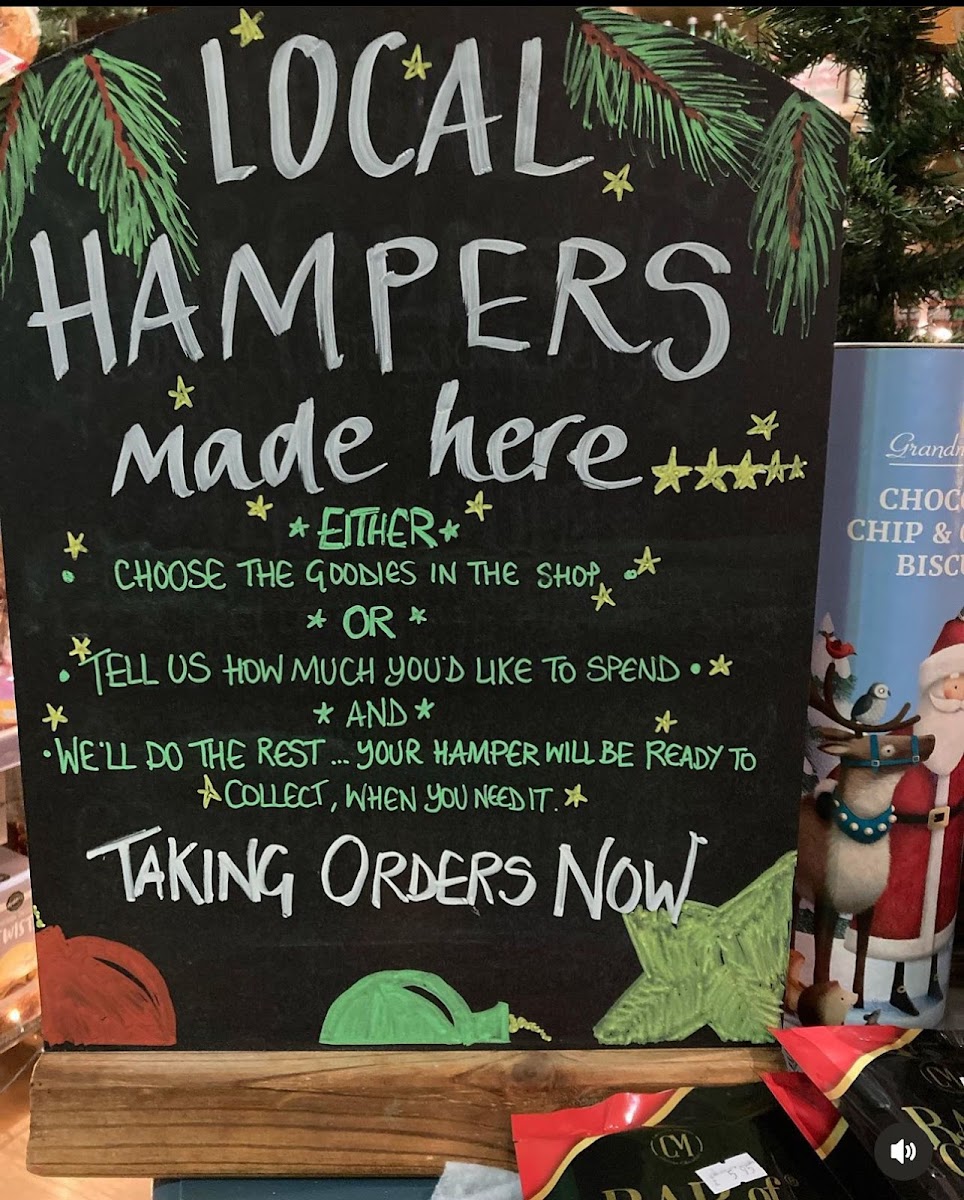 LOCAL
HAMPERS
made here
EITHER
• CHOOSE THE GOODIES IN THE SHOP, •
OR
• TELL US HOW MUCH YOU'D LIKE TO SPEND •
AND
• WE'LL DO THE REST... YOUR HAMPER WILL BE READY TO
COLLECT, WHEN YOU NEED IT.
TAKING ORDERS NOW
CHIP &
CM
CM
£5.95
of